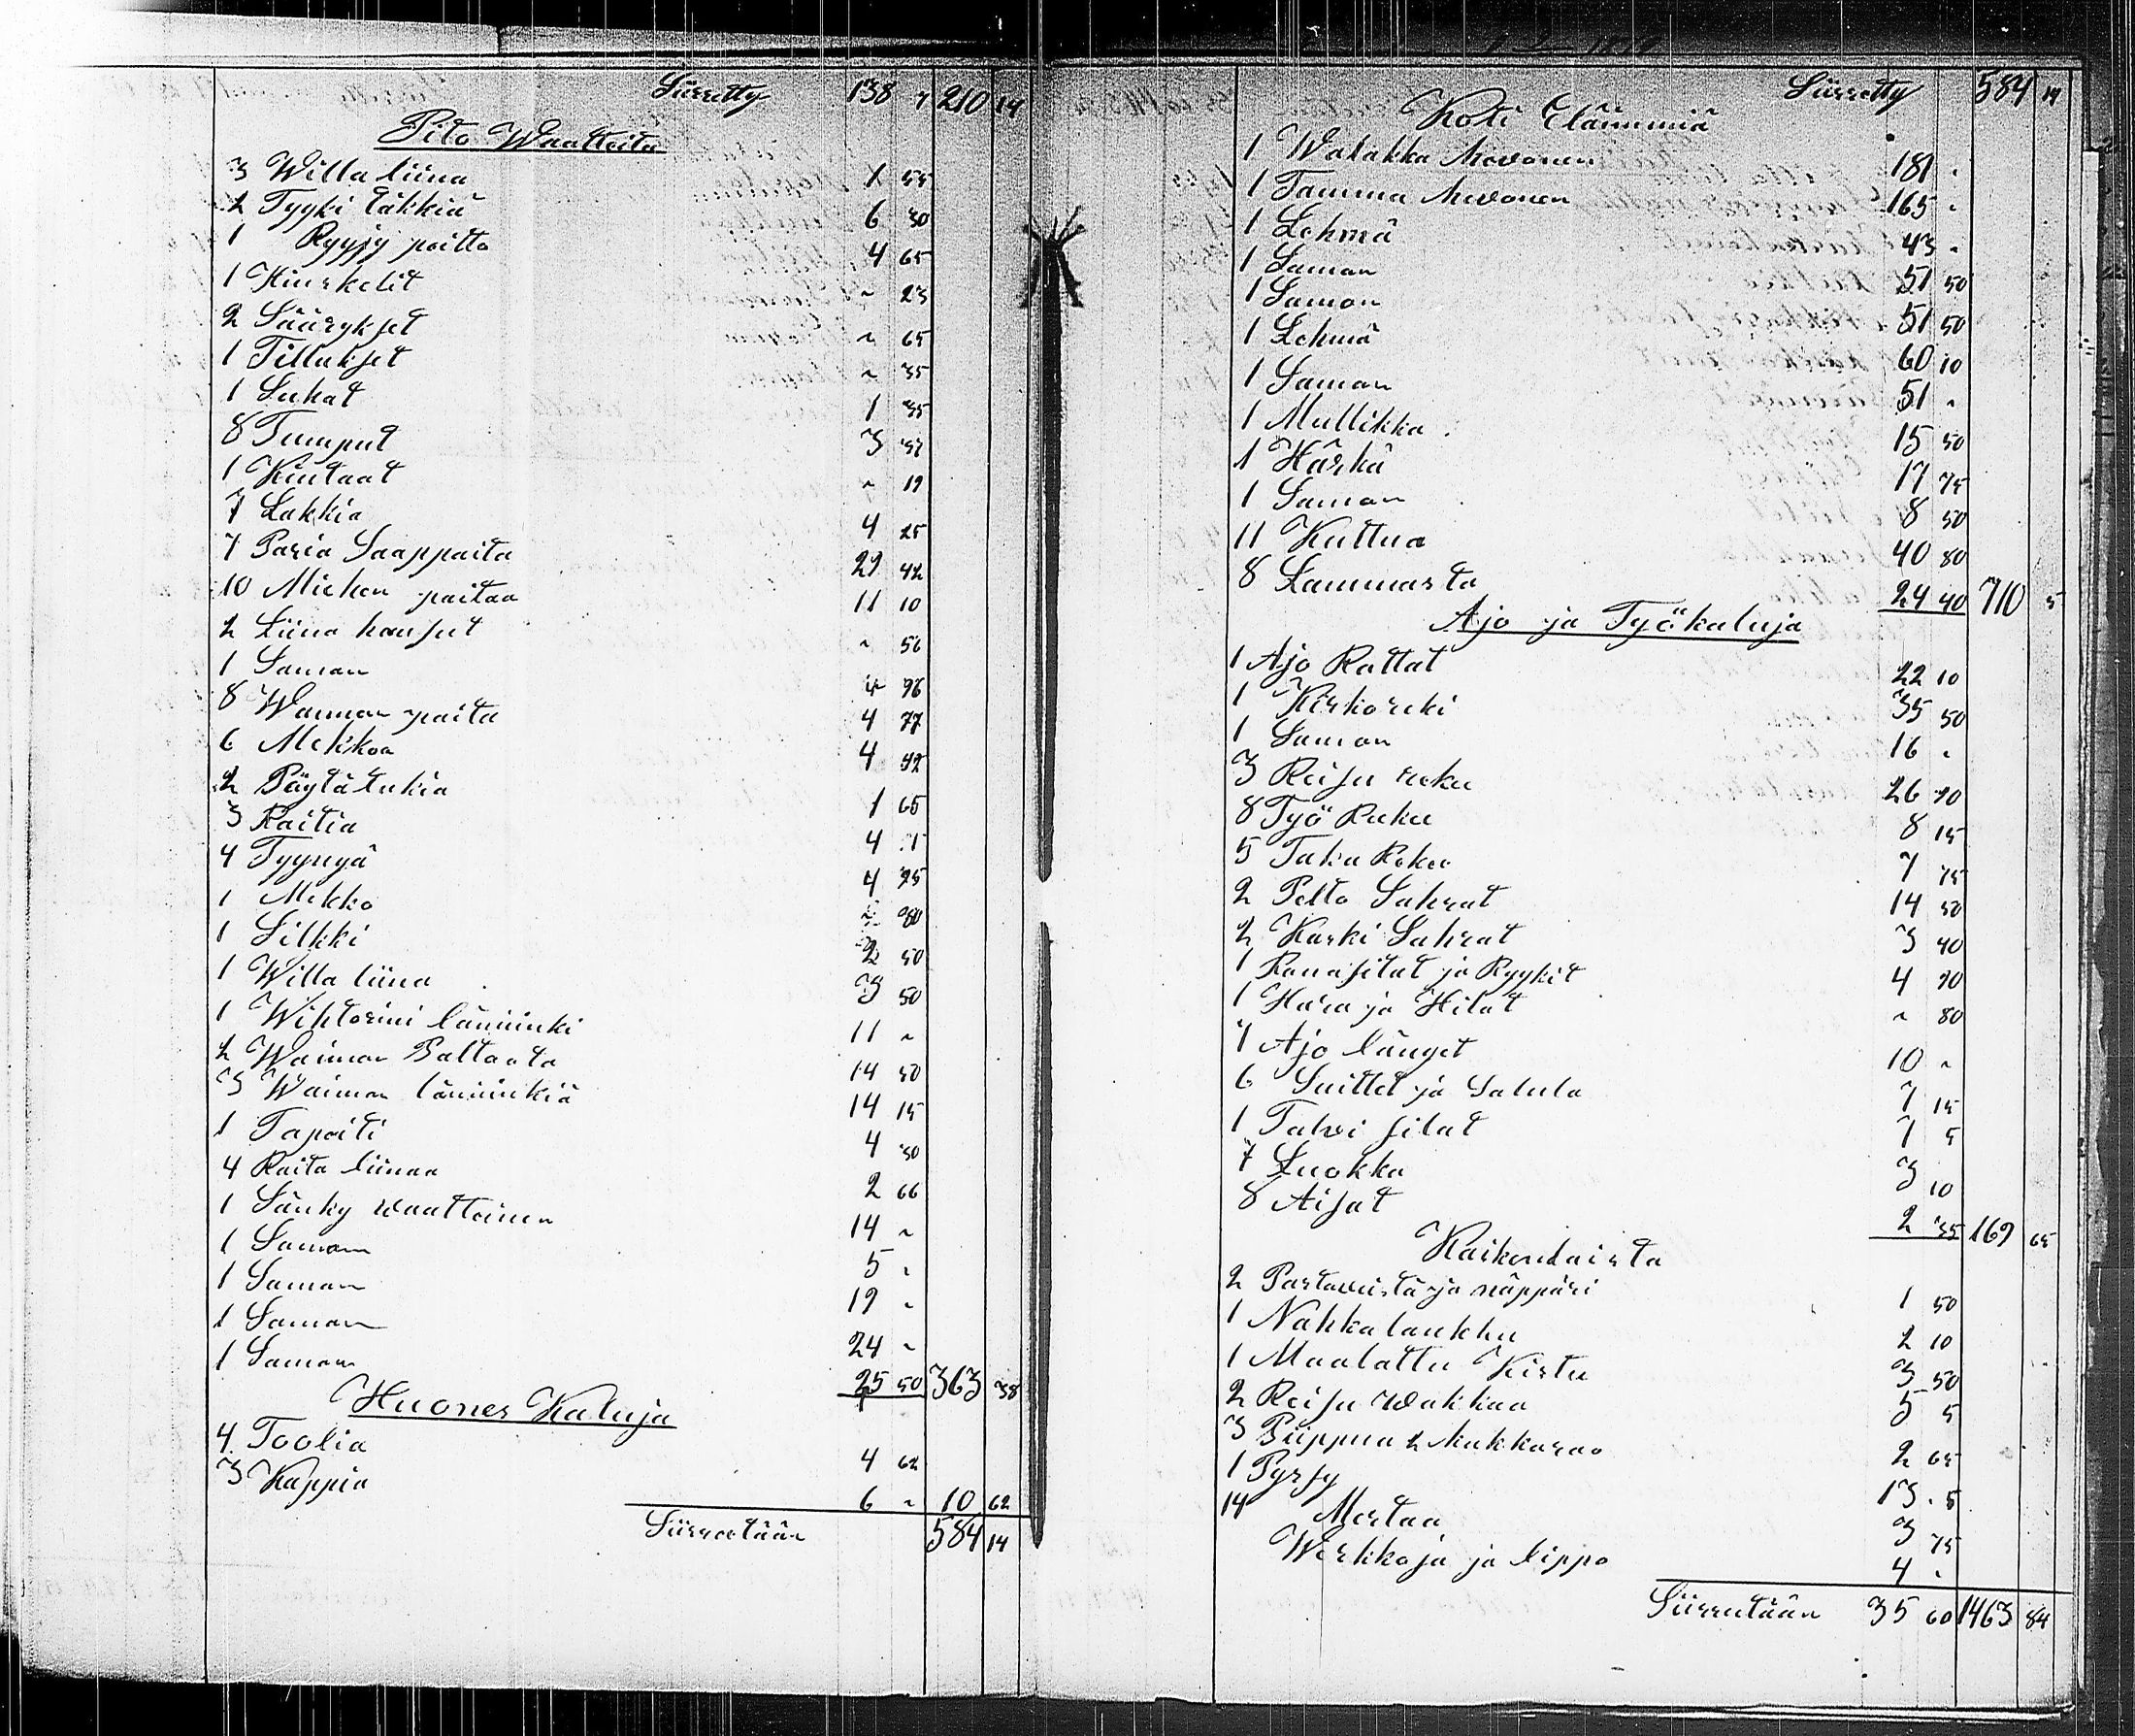 Siirretty 138 4 210 14
Pito Waatteita
3 Willa liina 1 55
2 Tyyki täkkiä 6 30
1 Ryyjy peitto 4 65
1 Hiurkelit " 23
2 Säärykset " 65
1 Tillukset " 35
1 Sukat 1 35
8 Tumput 3 37
1 Kintaat " 19
7 Lakkia 4 25
7 Paria Saappaita 29 42
10 Miehen paitaa 11 10
2 Liina housut " 56
1 Saman 4 96
8 Waimon paita 4 77
6 Mekkoa 4 92
2 Pöytä tukia 1 65
3 Raitia 4
4 Tyynyä 4 25
1 Mekko 80
1 Silkki 2 50
1 Willa liina 3 50
1 Wihtorini läninki 11 "
2 Waimon Paltoota 14 50
3 Waimon läninkiä 14 15
1 Tapeiti 4 30
4 Raita liinaa 2 66
1 Sänky waatteinen 14 "
1 Saman 5 "
1 Saman 19 "
1 Saman 24 "
1 Saman 25 50 363 38
Huones Kaluja
4 Toolia 4 62
3 Kappia 6 " 10 62
Siirretään 584 14
Siirretty 584 14
Koti Eläimmiä
1 Walakka hevonen 181 "
1 Tamma hevonen 165 "
1 Lehmä 43 "
1 Saman 51 50
1 Saman 51 50
1 Lehmä 60 10
1 Saman 51 "
1 Mullikka 15 50
1 Härkä 17 75
1 Saman 8 50
11 Kuttua 40 80
8 Lammasta 24 40 710 5
Ajo ja Työkaluja
1 Ajo Rattat 22 10
1 Kirkoreki 35 50
1 Saman 16 "
3 Reisu reku 26 90
8 Työ Reku 8 15
5 Taka Reku 7 75
2 Pelto Sahrat 14 50
2 Karki Sahrat 3 40
1 Ranasilat ja Ryykit 4 90
1 Hara ja Hilat " 80
7 Ajo länget 10 "
6 Suittet ja Satula 7 15
1 Talvi silat 7 5
7 Luokka 3 10
8 Aisat 2 35 169 65
Kaikenlaista
2 Partaveistä ja näppäri 1 50
1 Nahkalaukku 2 10
1 Maalattu Kirtu 3 50
2 Reisu wakkaa 5 5
3 Piippua 2 kukkaroo 2 65
1 Pyrsy 13 5
14 Mertaa 3 75
Werkkoja ja lippo 4 "
Siirretään 35 60 1463 84